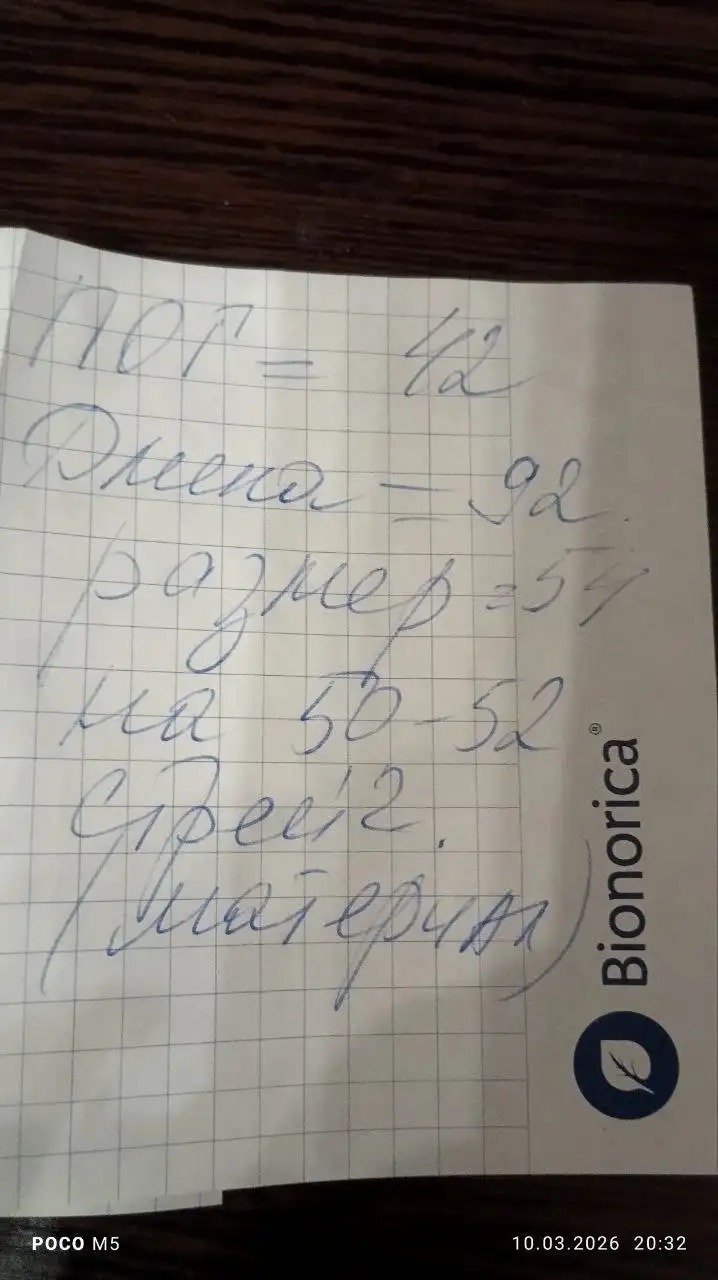 ПОГ = 42
Длина = 92
размер = 54
на 50-52
стрейч.
(материал)
Bionorica®
POCO M5
10.03.2026 20:32